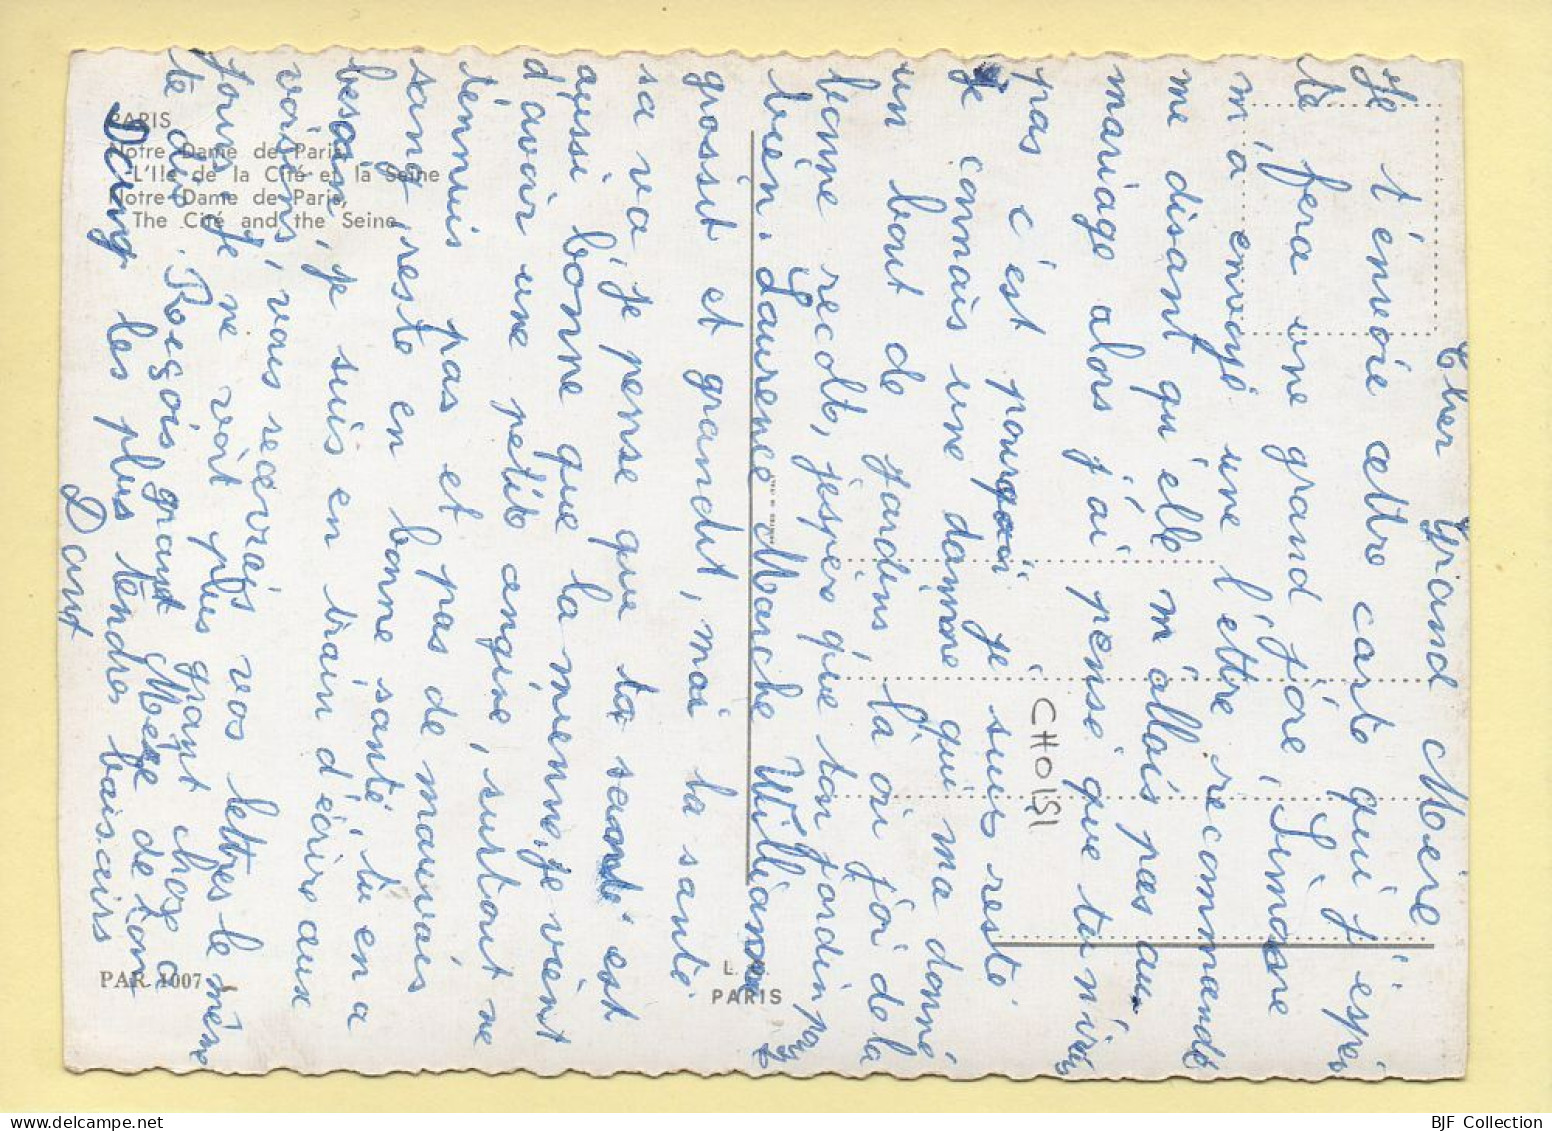 Cher Grand Mère
Je t'envoie cette carte qui j'espér
te fera une grand joie, Simone
m'a envoyé une l'ettre recommendé
me disant qu'elle m'allais pas au
mariage alors j'ai pensé que tu n'iras
pas c'est pourquoi je suis resté
Je connais une damme qui ma donné
un bout de jardin, la oú j'ai de la
bonne recolt, jéspèr que ton jardin pousse
bien. Laurence Marche William
grossit et grandit, moi la santé
sa va, je pense que ta santé est
aussi bonne que la mienne, je vient
d'avoir une petite angine, surtout ne
t'ennuis pas et pas de mauvais
sang, reste en bonne santé, tu en a
besoin, je suis en train d'écrire aux
voisins, vous recevrais vos lettres le même
jours je ne voit plus grant chose a
te dire. Reçois grant Mère de ton
Dany les plus tendres baisers
Dany
PARIS
Notre Dame de Paris,
L'Ile de la Cité et la Seine
Notre-Dame de Paris,
The Cité and the Seine
PAR 1007
PARIS
CHOISI
BJF Collection